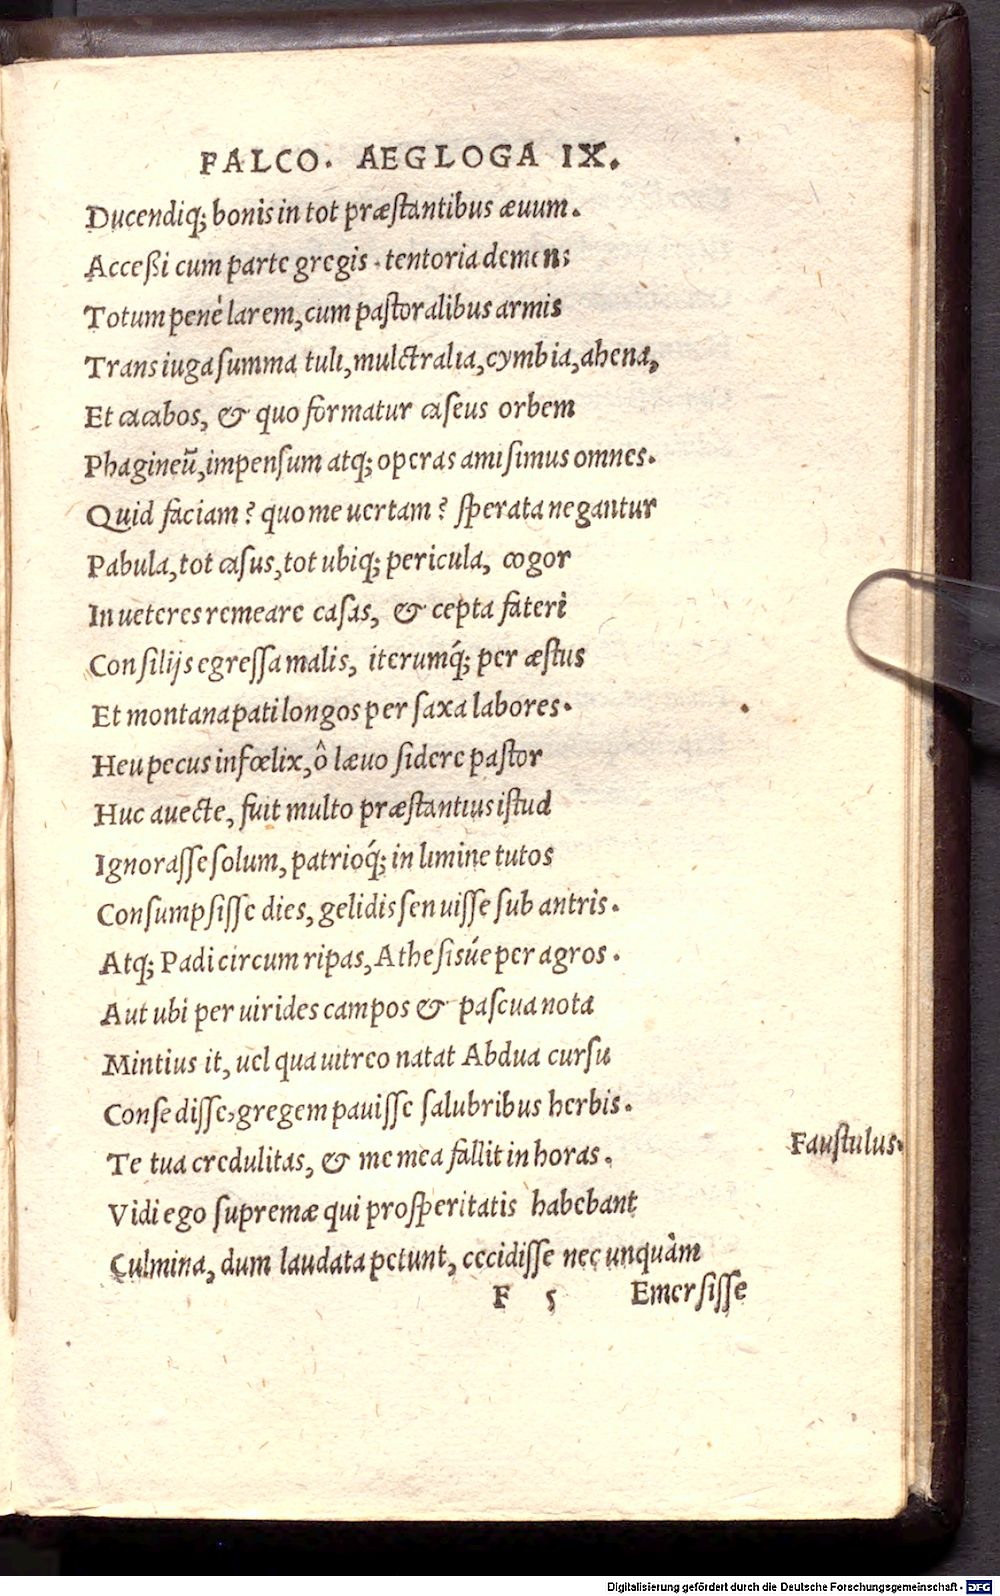 FALCO. AEGLOGA IX.
Ducendiq; bonis in tot præstantibus æuum.
Accessi cum parte gregis. tentoria demens
Totum penè larem, cum pastoralibus armis
Trans iuga summa tuli, mulctralia, cymbia, ahena,
Et cacabos, & quo formatur caseus orbem
Phagineū, impensum atq; operas amisimus omnes.
Quid faciam? quo me uertam? sperata negantur
Pabula, tot casus, tot ubiq; pericula, cogor
In ueteres remeare casas, & cepta fateri
Consilijs egressa malis, iterumq́; per æstus
Et montana pati longos per saxa labores.
Heu pecus infœlix, ô læuo sidere pastor
Huc auecte, fuit multo præstantius istud
Ignorasse solum, patrioq́; in limine tutos
Consumpsisse dies, gelidis senuisse sub antris.
Atq; Padi circum ripas, Athesisúe per agros.
Aut ubi per uirides campos & pascua nota
Mintius it, uel qua uitreo natat Abdua cursu
Consedisse, gregem pauisse salubribus herbis.
Te tua credulitas, & me mea fallit in horas. Faustulus.
Vidi ego supremæ qui prosperitatis habebant
Culmina, dum laudata petunt, cecidisse nec unquàm
F 5 Emersisse
Digitalisierung gefördert durch die Deutsche Forschungsgemeinschaft - DFG